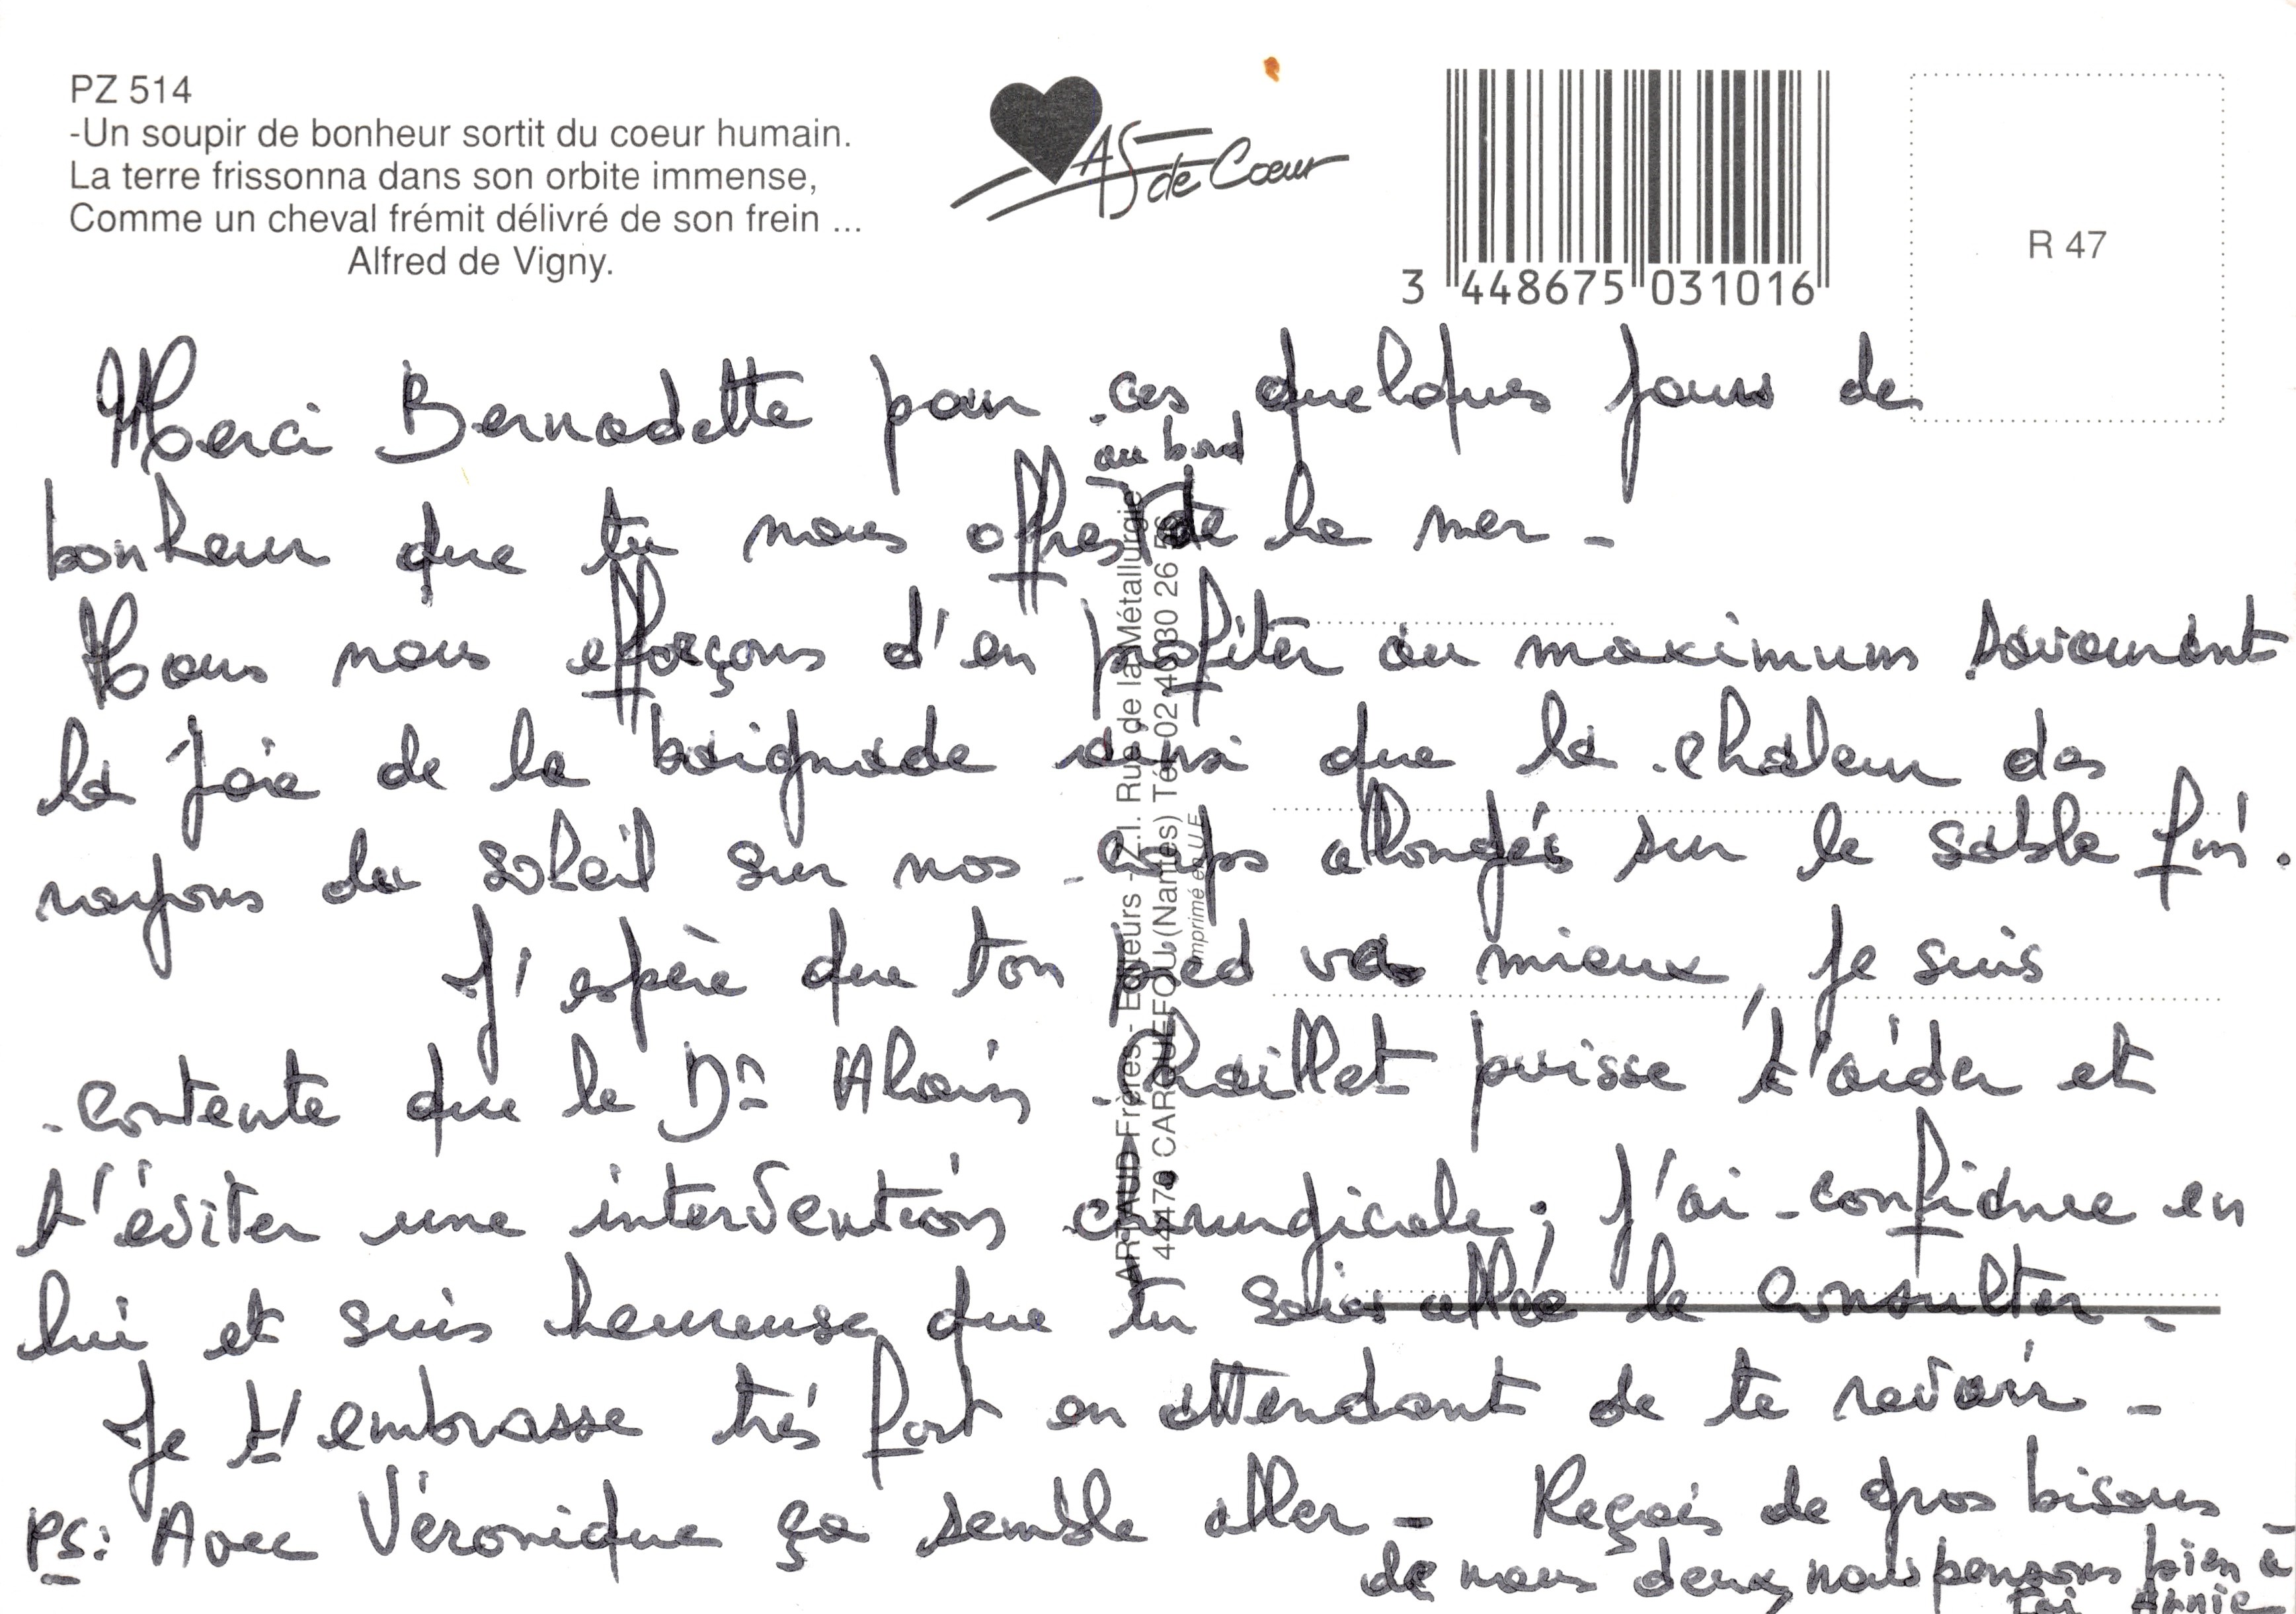 PZ 514
-Un soupir de bonheur sortit du coeur humain.
La terre frissonna dans son orbite immense,
Comme un cheval frémit délivré de son frein ...
Alfred de Vigny.
AS de Coeur
3 448675 031016
R 47
Merci Bernadette pour ces quelques jours de
au bord
bonheur que tu nous offres de la mer -
Nous nous efforçons d'en profiter au maximum savourant
la joie de la baignade ainsi que la chaleur des
rayons du soleil sur nos corps allongés sur le sable fin.
J'espère que ton pied va mieux, je suis
contente que le Dr Alain Chaillet puisse t'aider et
t'éviter une intervention chirurgicale ; j'ai confiance en
lui et suis heureuse que tu sois allée le consulter -
Je t'embrasse très fort en attendant de te revoir -
PS: Avec Véronique ça semble aller - Reçois de gros bisous
de nous deux, nous pensons bien à
toi Annie
ARTAUD Frères - Editeurs - Z.I. Rue de la Métallurgie
44470 CARQUEFOU (Nantes) Tél. 02 40 30 26 56
Imprimé en U.E.